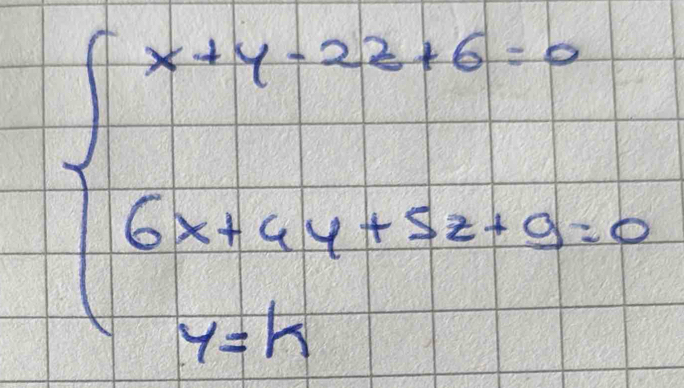 x+y-2z+6=0
6x+4y+5z+9=0
y=k